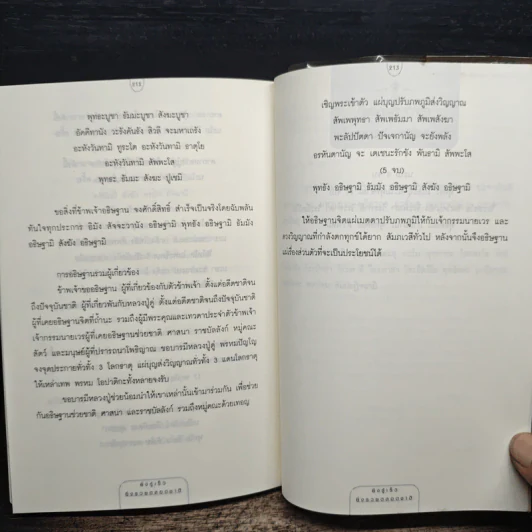 พุทธะบูชา ธัมมะบูชา สังฆะบูชา
อัคคีทานัง วะรังคันธัง สีวลี จะมหาเถรัง
อะหังวันทามิ ทูระโต อะหังวันทามิ ธาตุโย
อะหังวันทามิ สัพพะโส
พุทธะ ธัมมะ สังฆะ ปูเชมิ
ขอสิ่งที่ข้าพเจ้าอธิษฐาน จงศักดิ์สิทธิ์ สำเร็จเป็นจริงโดยฉับพลัน
ทันใจทุกประการ อิมัง สัจจะวานัง อธิษฐามิ พุทธัง อธิษฐามิ ธัมมัง
อธิษฐามิ สังฆัง อธิษฐามิ
การอธิษฐานรวมผู้เกี่ยวข้อง
ข้าพเจ้าขออธิษฐาน ผู้ที่เกี่ยวข้องกับตัวข้าพเจ้า ตั้งแต่อดีตชาติจน
ถึงปัจจุบันชาติ ผู้ที่เกี่ยวพันกับหลวงปู่ดู่ ตั้งแต่อดีตชาติจนถึงปัจจุบันชาติ
ผู้ที่เคยอธิษฐานจิตที่ถ้ำนะ รวมถึงผู้มีพระคุณและเทวดาประจำตัวข้าพเจ้า
เจ้ากรรมนายเวรผู้ที่เคยอธิษฐานช่วยชาติ ศาสนา ราชบัลลังก์ หมู่คณะ
สัตว์ และมนุษย์ผู้ที่ปรารถนาโพธิญาณ ขอบารมีหลวงปู่ดู่ พรหมปัญโญ
จงจุดประกายทั่วทั้ง 3 โลกธาตุ แผ่บุญส่งวิญญาณทั่วทั้ง 3 แดนโลกธาตุ
ให้เหล่าเทพ พรหม โอปาติกะทั้งหลายจงรับ
ขอบารมีหลวงปู่ช่วยน้อมนำให้เขาเหล่านั้นเข้ามาร่วมกัน เพื่อช่วย
กันอธิษฐานช่วยชาติ ศาสนา และราชบัลลังก์ รวมถึงหมู่คณะด้วยเทอญ
เชิญพระเข้าตัว แผ่บุญปรับภพภูมิส่งวิญญาณ
สัพเพพุทธา สัพเพธัมมา สัพเพสังฆา
พะลัปปัตตา ปัจเจกานัญ จะยังพลัง
อรหันตานัญ จะ เตเชนะรักขัง พันธามิ สัพพะโส
(5 จบ)
พุทธัง อธิษฐามิ ธัมมัง อธิษฐามิ สังฆัง อธิษฐามิ
ให้อธิษฐานจิตแผ่เมตตาปรับภพภูมิให้กับเจ้ากรรมนายเวร และ
ดวงวิญญาณที่กำลังตกทุกข์ได้ยาก สัมภเวสีทั่วไป หลังจากนั้นจึงอธิษฐาน
เรื่องส่วนตัวที่จะเป็นประโยชน์ได้